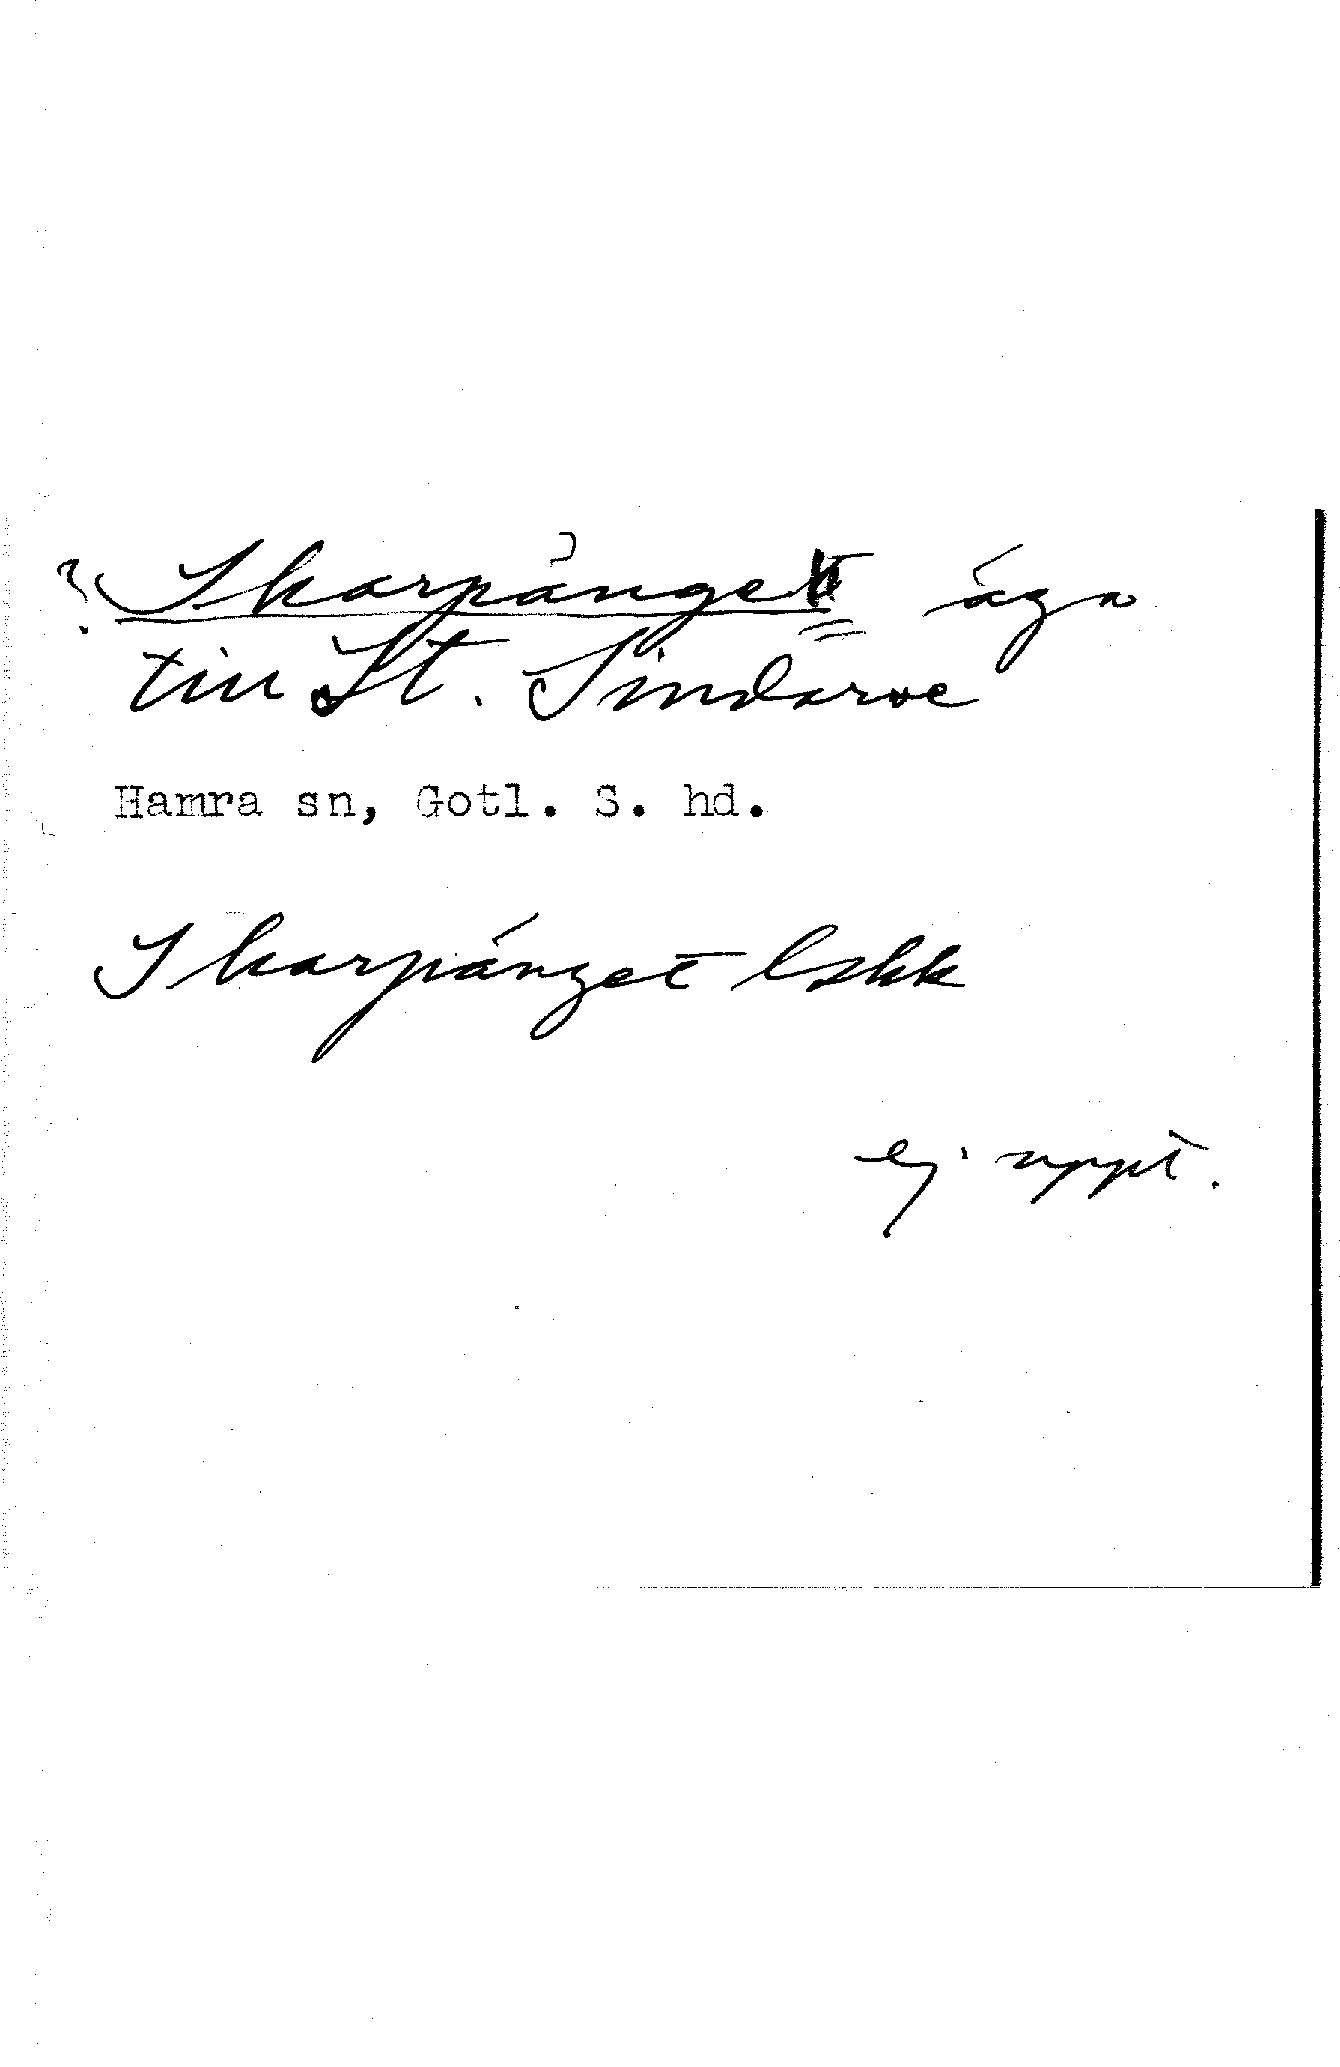 ? Skarpänget äga
till St. Sindarve
Hamra sn, Gotl. S. hd.
Skarpänget lskk
ej uppt.